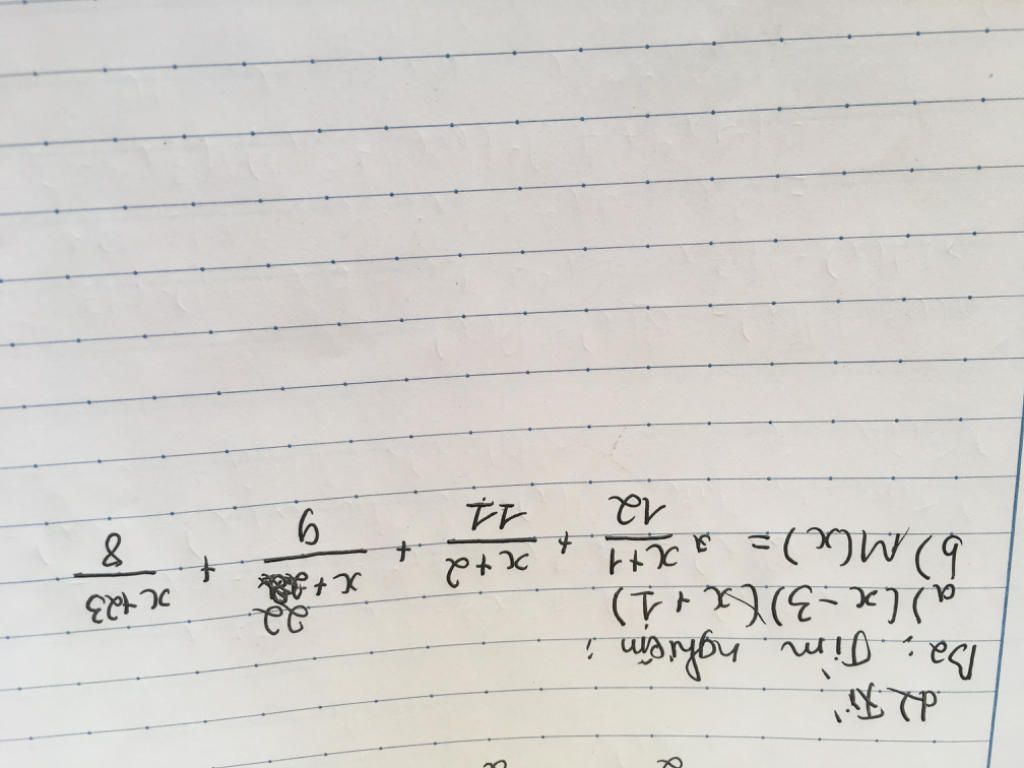 B2: Tìm nghiệm:
a) (x - 3)(x + 1)
b) M(x) = x+1/12 + x+2/11 + x+22/9 + x+23/8